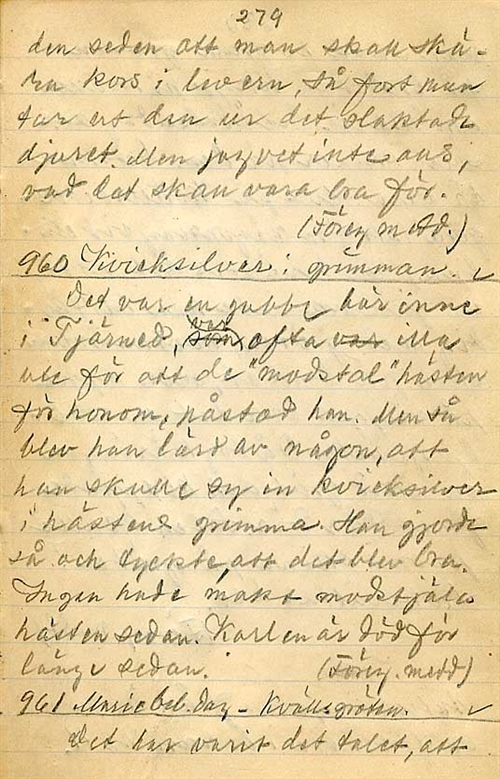 279
den seden att man skall skä-
ra kors i levern, så fort man
tar ut den ur det slaktade
djuret. Men jag vet inte alls,
vad det skall vara bra för.
(Föreg. medd.)
960 Kvicksilver i grimman.
Det var en gubbe här inne
i Tjärned, var ofta illa
ute för att de "modstal" hästen
för honom, påstod han. Men så
blev han lärd av någon, att
han skulle sy in kvicksilver
i hästens grimma. Han gjorde
så och tyckte, att det blev bra.
Ingen hade makt modstjäla
hästen sedan. Karlen är död för
länge sedan. (Föreg. medd.)
961 Mariebeb. dag - Kvällsgröten.
Det har varit det talet, att